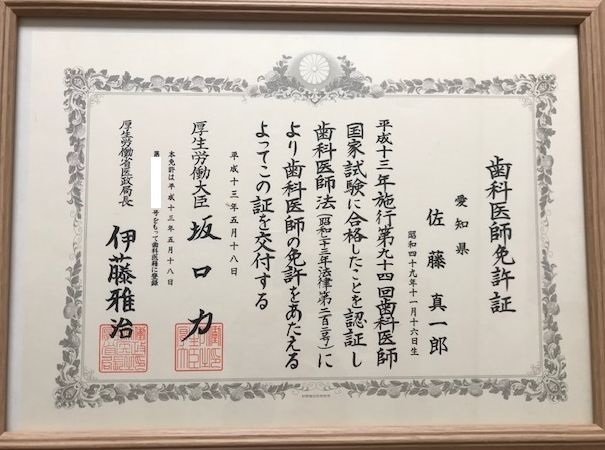 歯科医師免許証
愛知県
佐藤真一郎
昭和四十九年十一月十六日生
平成十三年施行第九十四回歯科医師
国家試験に合格したことを認証し
歯科医師法（昭和二十三年法律第二百二号）に
より歯科医師の免許をあたえる
よってこの証を交付する
平成十三年五月十八日
厚生労働大臣 坂口力
本免許は平成十三年五月十八日
第 号をもって歯科医籍に登録
厚生労働省医政局長 伊藤雅治